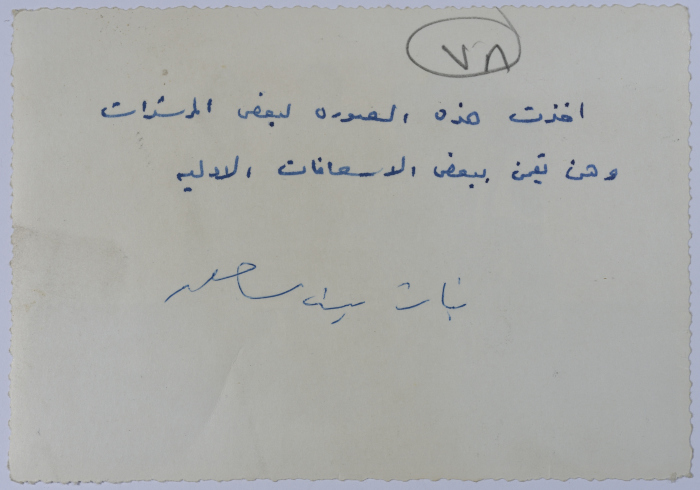 ٧٨
اخذت هذه الصوره لبعض المرشدات
وهن يقمن ببعض الاسعافات الاوليه
بنات بيت ساحور